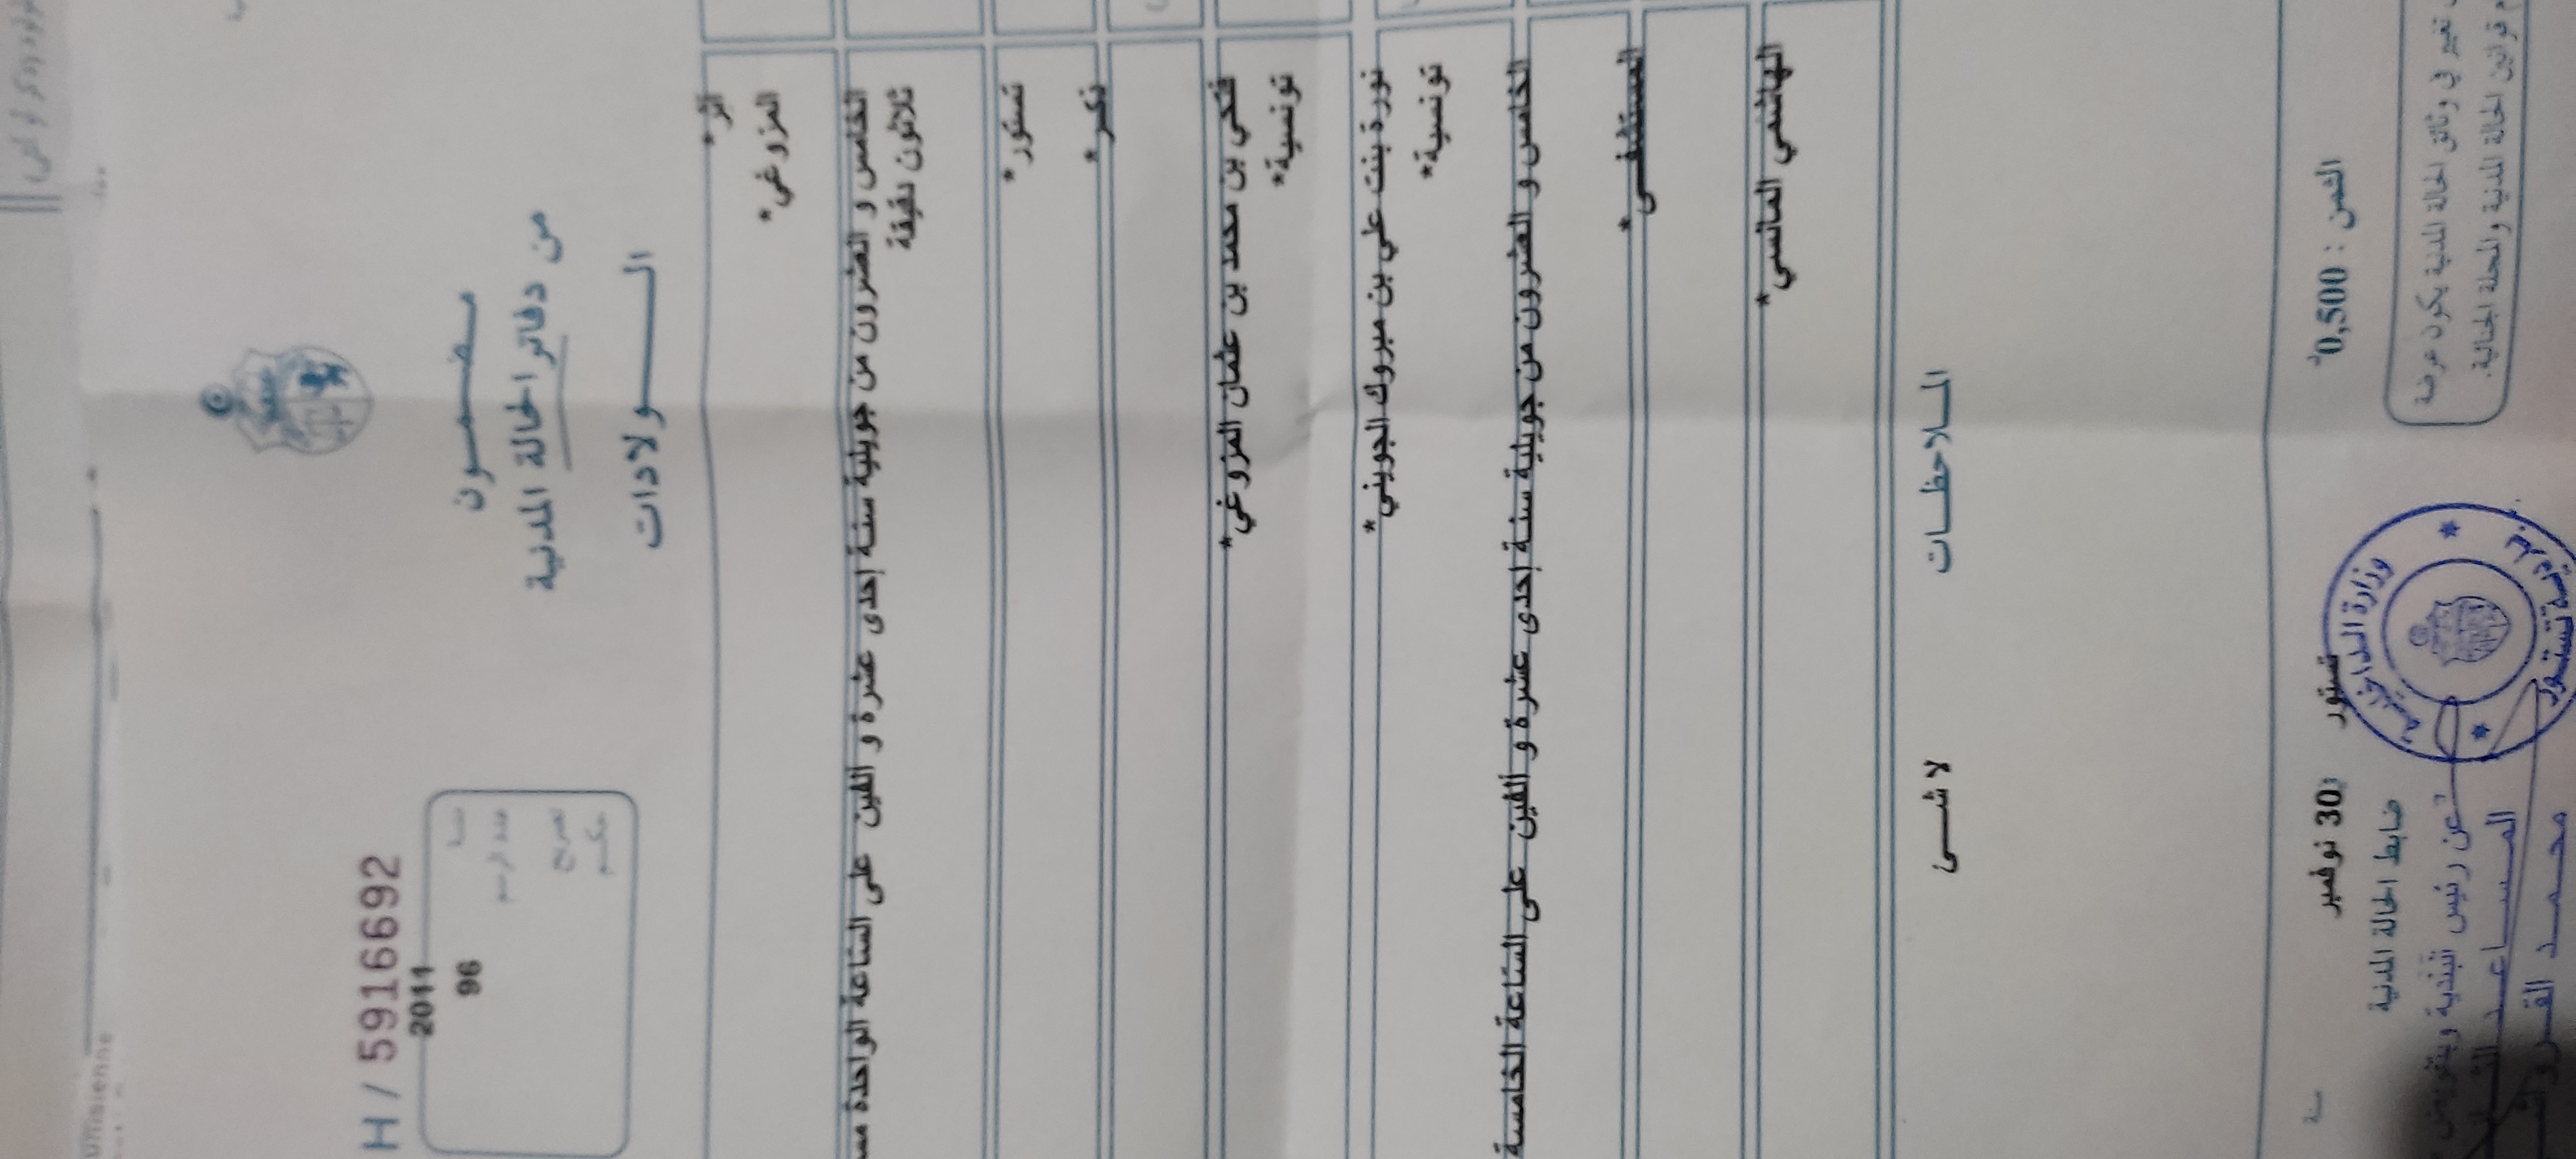 H / 5916692
2011
96
مضمون
من دفاتر الحالة المدنية
الولادات
المزوغي*
الخامس و العشرون من جويلية سنة إحدى عشرة و ألفين على الساعة الواحدة
ثلاثون دقيقة
تستور*
ذكر*
فتحي بن محمد بن عثمان المزوغي*
تونسية*
نورة بنت علي بن مبروك الجويني*
تونسية*
الخامس و العشرون من جويلية سنة إحدى عشرة و ألفين على الساعة الخامسة
المستشفى*
الهاشمي المانسي*
الملاحظات
لا شى
الثمن : 0,500
تستور
30 نوفمبر
سنة
ضابط الحالة المدنية
تغيير في وثائق الحالة المدنية يكون عرضة
قوانين الحالة المدنية والمجلة الجنائية.
وزارة الداخلية
تستور
عن رئيس البلدية وبتفويض
محمد
unisienne